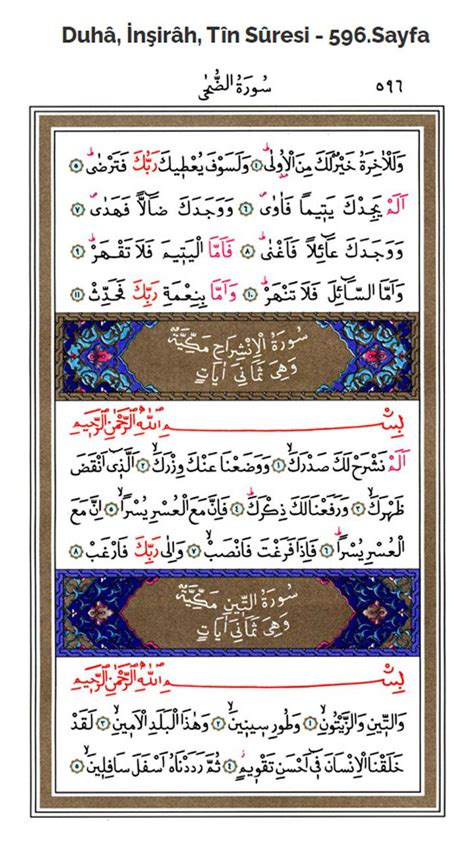 Duhâ, İnşirâh, Tîn Sûresi - 596.Sayfa
سُورَةُ الضُّحٰى ٥٩٦
وَلَلْاٰخِرَةُ خَيْرٌ لَكَ مِنَ الْاُولٰىۜ ﴿٤﴾ وَلَسَوْفَ يُعْط۪يكَ رَبُّكَ فَتَرْضٰىۜ ﴿٥﴾
اَلَمْ يَجِدْكَ يَت۪يماً فَاٰوٰىۖ ﴿٦﴾ وَوَجَدَكَ ضَٓالاًّ فَهَدٰىۖ ﴿٧﴾
وَوَجَدَكَ عَٓائِلاً فَاَغْنٰىۜ ﴿٨﴾ فَاَمَّا الْيَت۪يمَ فَلَا تَقْهَرْۜ ﴿٩﴾
وَاَمَّا السَّٓائِلَ فَلَا تَنْهَرْۜ ﴿١٠﴾ وَاَمَّا بِنِعْمَةِ رَبِّكَ فَحَدِّثْ ﴿١١﴾
سُورَةُ الْاِنْشِرَاحِ مَكِّيَّةٌ
وَهِيَ ثَمَانِيَ اٰيَاتٍ
بِسْمِ اللّٰهِ الرَّحْمٰنِ الرَّح۪يمِ
اَلَمْ نَشْرَحْ لَكَ صَدْرَكَۙ ﴿١﴾ وَوَضَعْنَا عَنْكَ وِزْرَكَۙ ﴿٢﴾ اَلَّـذ۪ٓي اَنْقَضَ
ظَهْرَكَۙ ﴿٣﴾ وَرَفَعْنَا لَكَ ذِكْرَكَۜ ﴿٤﴾ فَاِنَّ مَعَ الْعُسْرِ يُسْراًۙ ﴿٥﴾ اِنَّ مَعَ
الْعُسْرِ يُسْراًۜ ﴿٦﴾ فَاِذَا فَرَغْتَ فَانْصَبْۙ ﴿٧﴾ وَاِلٰى رَبِّكَ فَارْغَبْ ﴿٨﴾
سُورَةُ التّ۪ينِ مَكِّيَّةٌ
وَهِيَ ثَمَانِيَ اٰيَاتٍ
بِسْمِ اللّٰهِ الرَّحْمٰنِ الرَّح۪يمِ
وَالتّ۪ينِ وَالزَّيْتُونِۙ ﴿١﴾ وَطُورِ س۪ين۪ينَۙ ﴿٢﴾ وَهٰذَا الْبَلَدِ الْاَم۪ينِۙ ﴿٣﴾ لَقَدْ
خَلَقْنَا الْاِنْسَانَ ف۪ٓي اَحْسَنِ تَقْو۪يمٍۘ ﴿٤﴾ ثُمَّ رَدَدْنَاهُ اَسْفَلَ سَافِل۪ينَۙ ﴿٥﴾